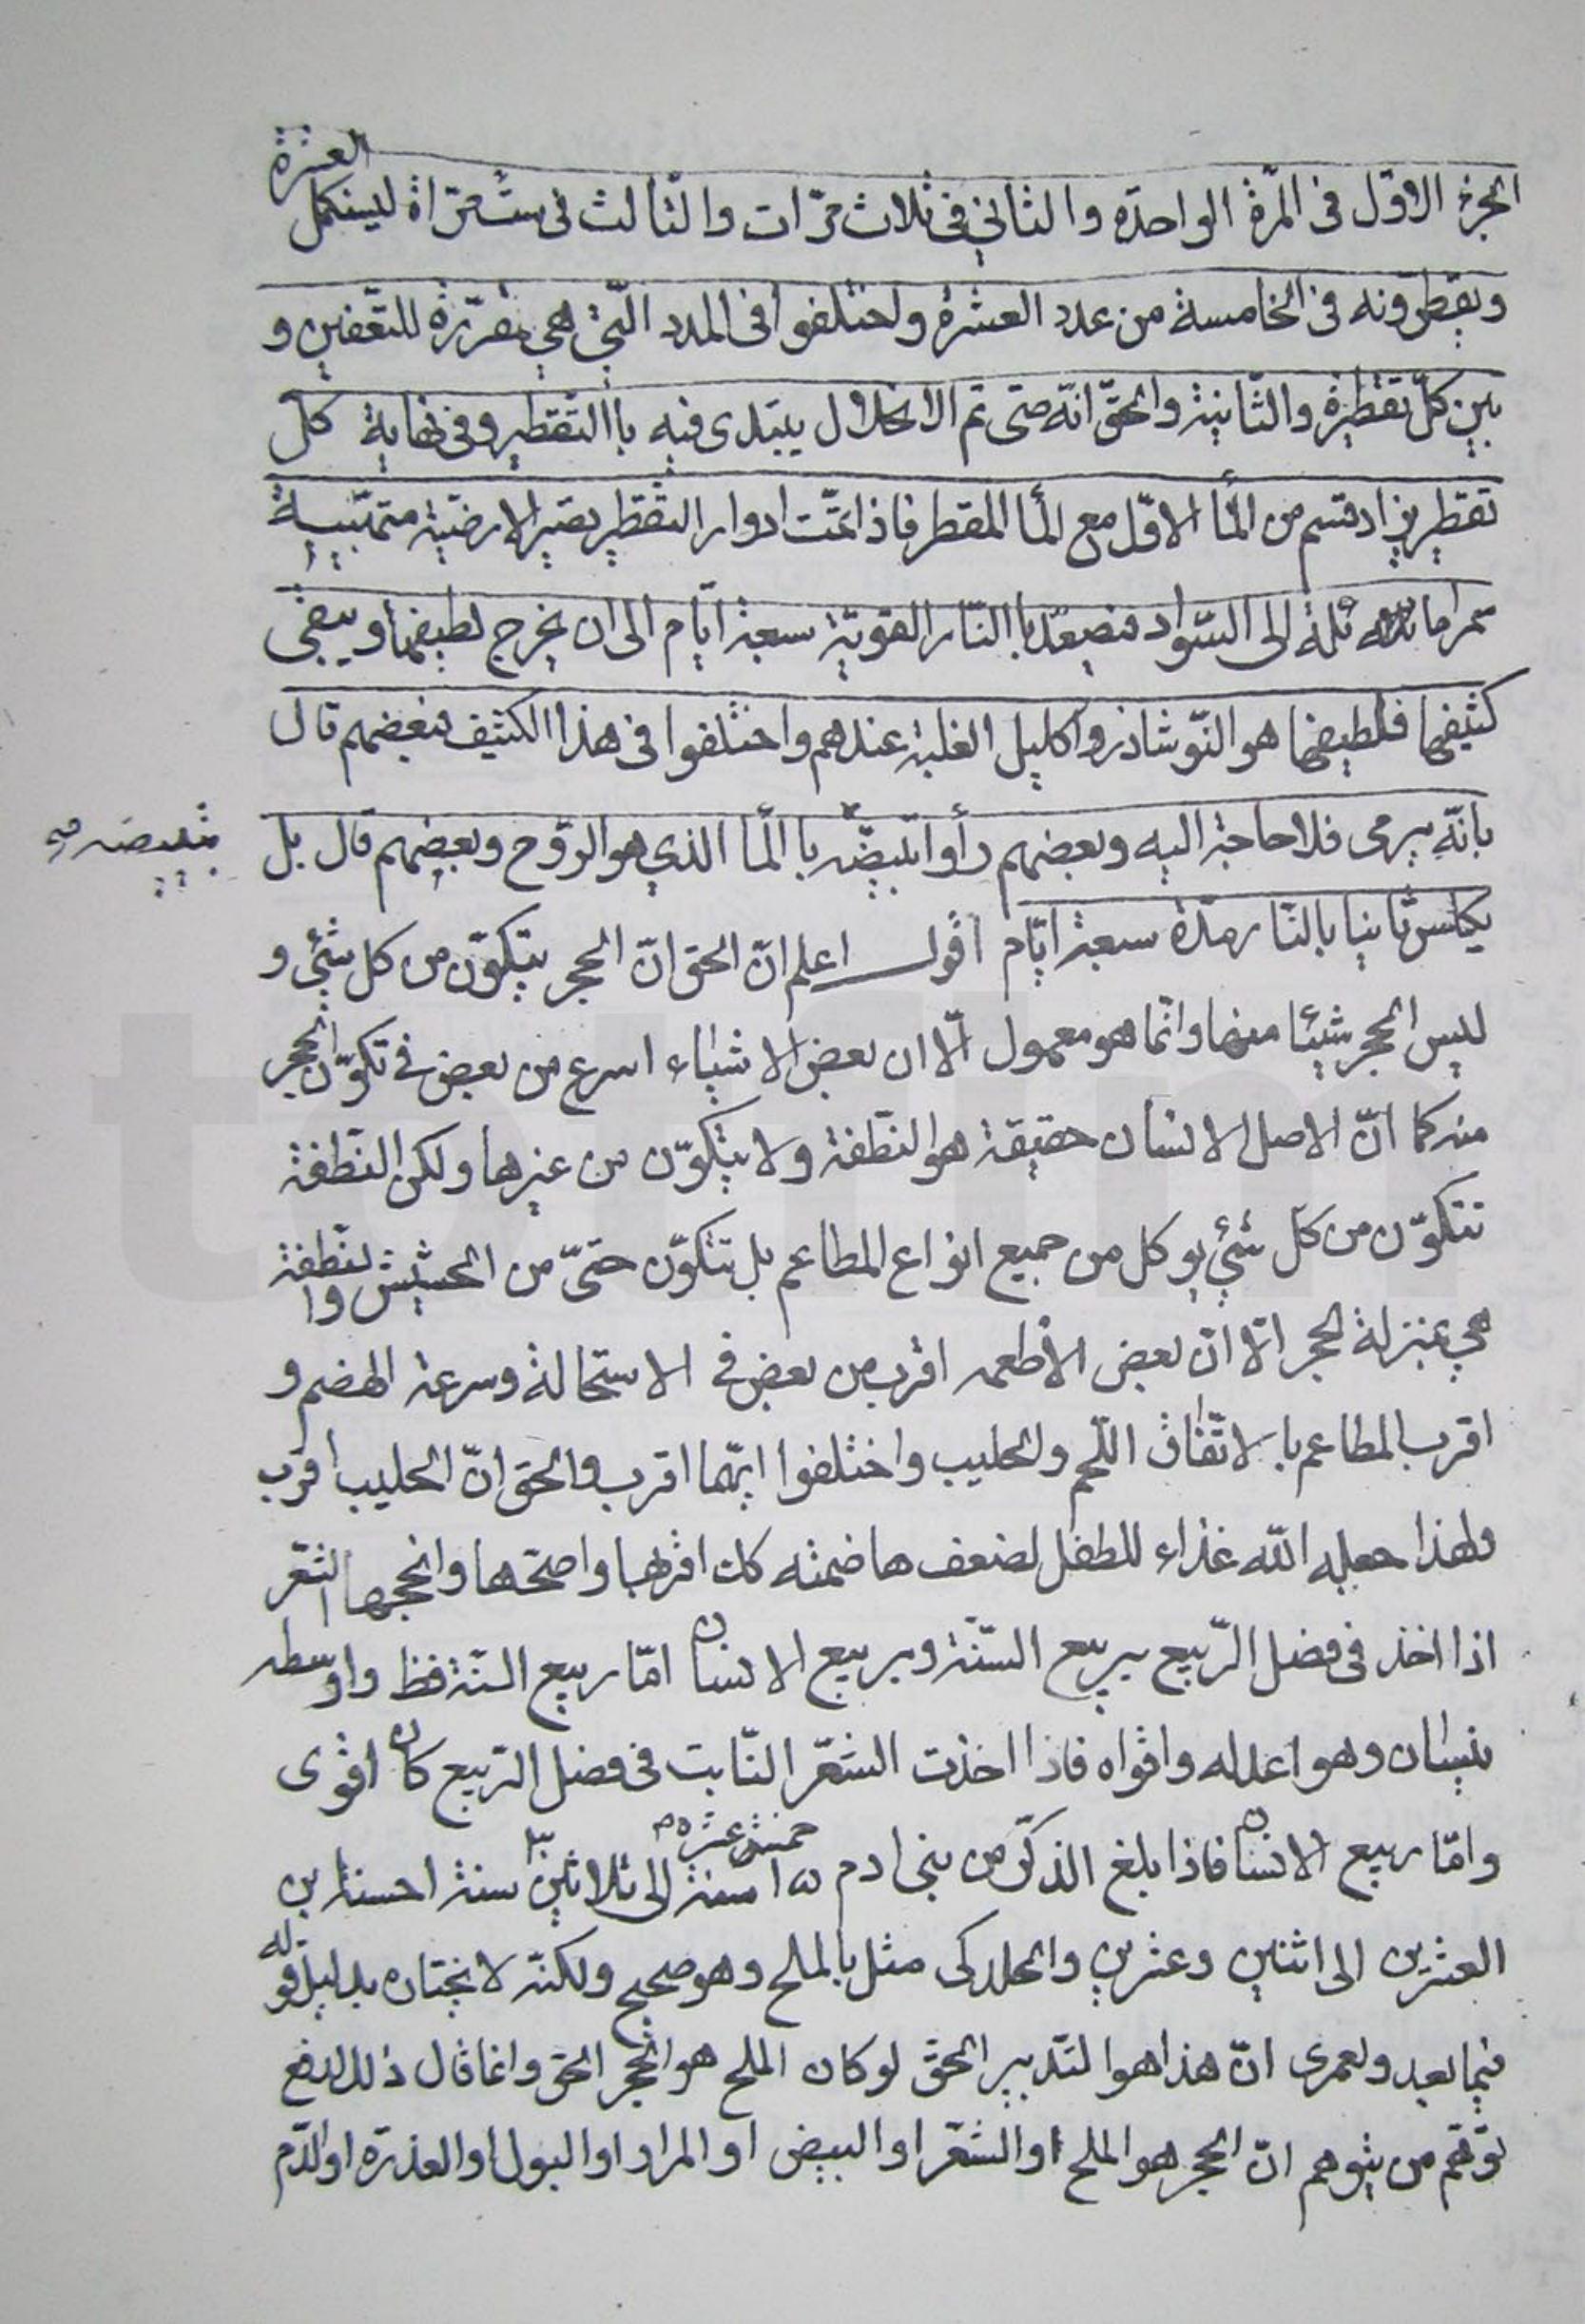 الجزء الاوّل فى المّرة الواحدة والثاني فى ثلاث مرّات والثالث فى ستّ مرّاة ليستكمل العشرة
ويقطرّونه فى الخامسة من عدد العشرة واختلفوا فى المدد الّتي هي مقرّرة للتّعفين و
بين كلّ تقطيرة والثّانية والحقّ انّه متى تم الانحلال يبتدى فيه باالتّقطير وفى نهاية كل
تقطير يزاد قسم من المأا الاوّل مع المأا المقطر فاذا تمّت ادوار التقطير يصير الارضيّة متهبّية
سمرا مائلة الى السّواد فتصعّد باالنّار القوّية سبعة ايّام الى ان يخرج لطيفها ويبقى
كثيفها فلطيفها هو النّوشاذر واكليل الغلبة عندهم واختلفوا فى هذا الكثيف فبعضهم قال
بانّه يرمى فلا حاجة اليه وبعضهم رأوا تبيضّه باالمأا الذي هو الرّوح وبعضهم قال بل
تبييضه
يكلس ثانيا بالنّار مدّة سبعة ايّام اقول اعلم انّ الحق انّ الحجر يتكوّن من كل شئي و
ليس الحجر شيئا منها وانّما هو معمول الّا ان بعض الاشياء اسرع من بعض فى تكوّن الحجر
منه كما انّ الاصل الانسان حقيقة هو النّطفة ولا يتكوّن من غيرها ولكن النّطفة
تتكوّن من كلّ شئي يوكل من جميع انواع المطاعم بل تتكوّن حتىّ من الحشيش والنطفة
هي بمنزلة الحجر الّا انّ بعض الأطعمه اقرب من بعض فى الاستحالة وسرعة الهضم و
اقرب المطاعم بالاتّفاق اللّحم والحليب واختلفوا ايّهما اقرب والحق انّ الحليب اقرب
ولهذا جعله اللّه غذاء للطفل لضعف هاضمته كان اقربها واصحّها وانجحها الشّعر
اذا اخذ فى فصل الرّبيع بربيع السّنة وبربيع الانسان امّا ربيع السّنة فظ واوسطه
نيسان وهو اعدله واقواه فاذا اخذت الشّعر النّابت فى فصل الرّبيع كان اقوى
وامّا ربيع الانسان فاذا بلغ الذّكر من بنى ادم ١٥ خمسة عشرة سنة الى ثلاثين ٣٠ سنة احسنه ابن
العشرين الى اثنين وعشرين والجلدكى مثل بالملح وهو صحيح ولكنّه لا نختاره بدليل قوله
فيما بعد ولعمرى انّ هذا هو التّدبير الحقّ لو كان الملح هو الحجر الحق وانما قال ذلك لدفع
توهّم من يتوهم انّ الحجر هو الملح او الشّعر او البيض او المرار او البول او العذرة او الدّم